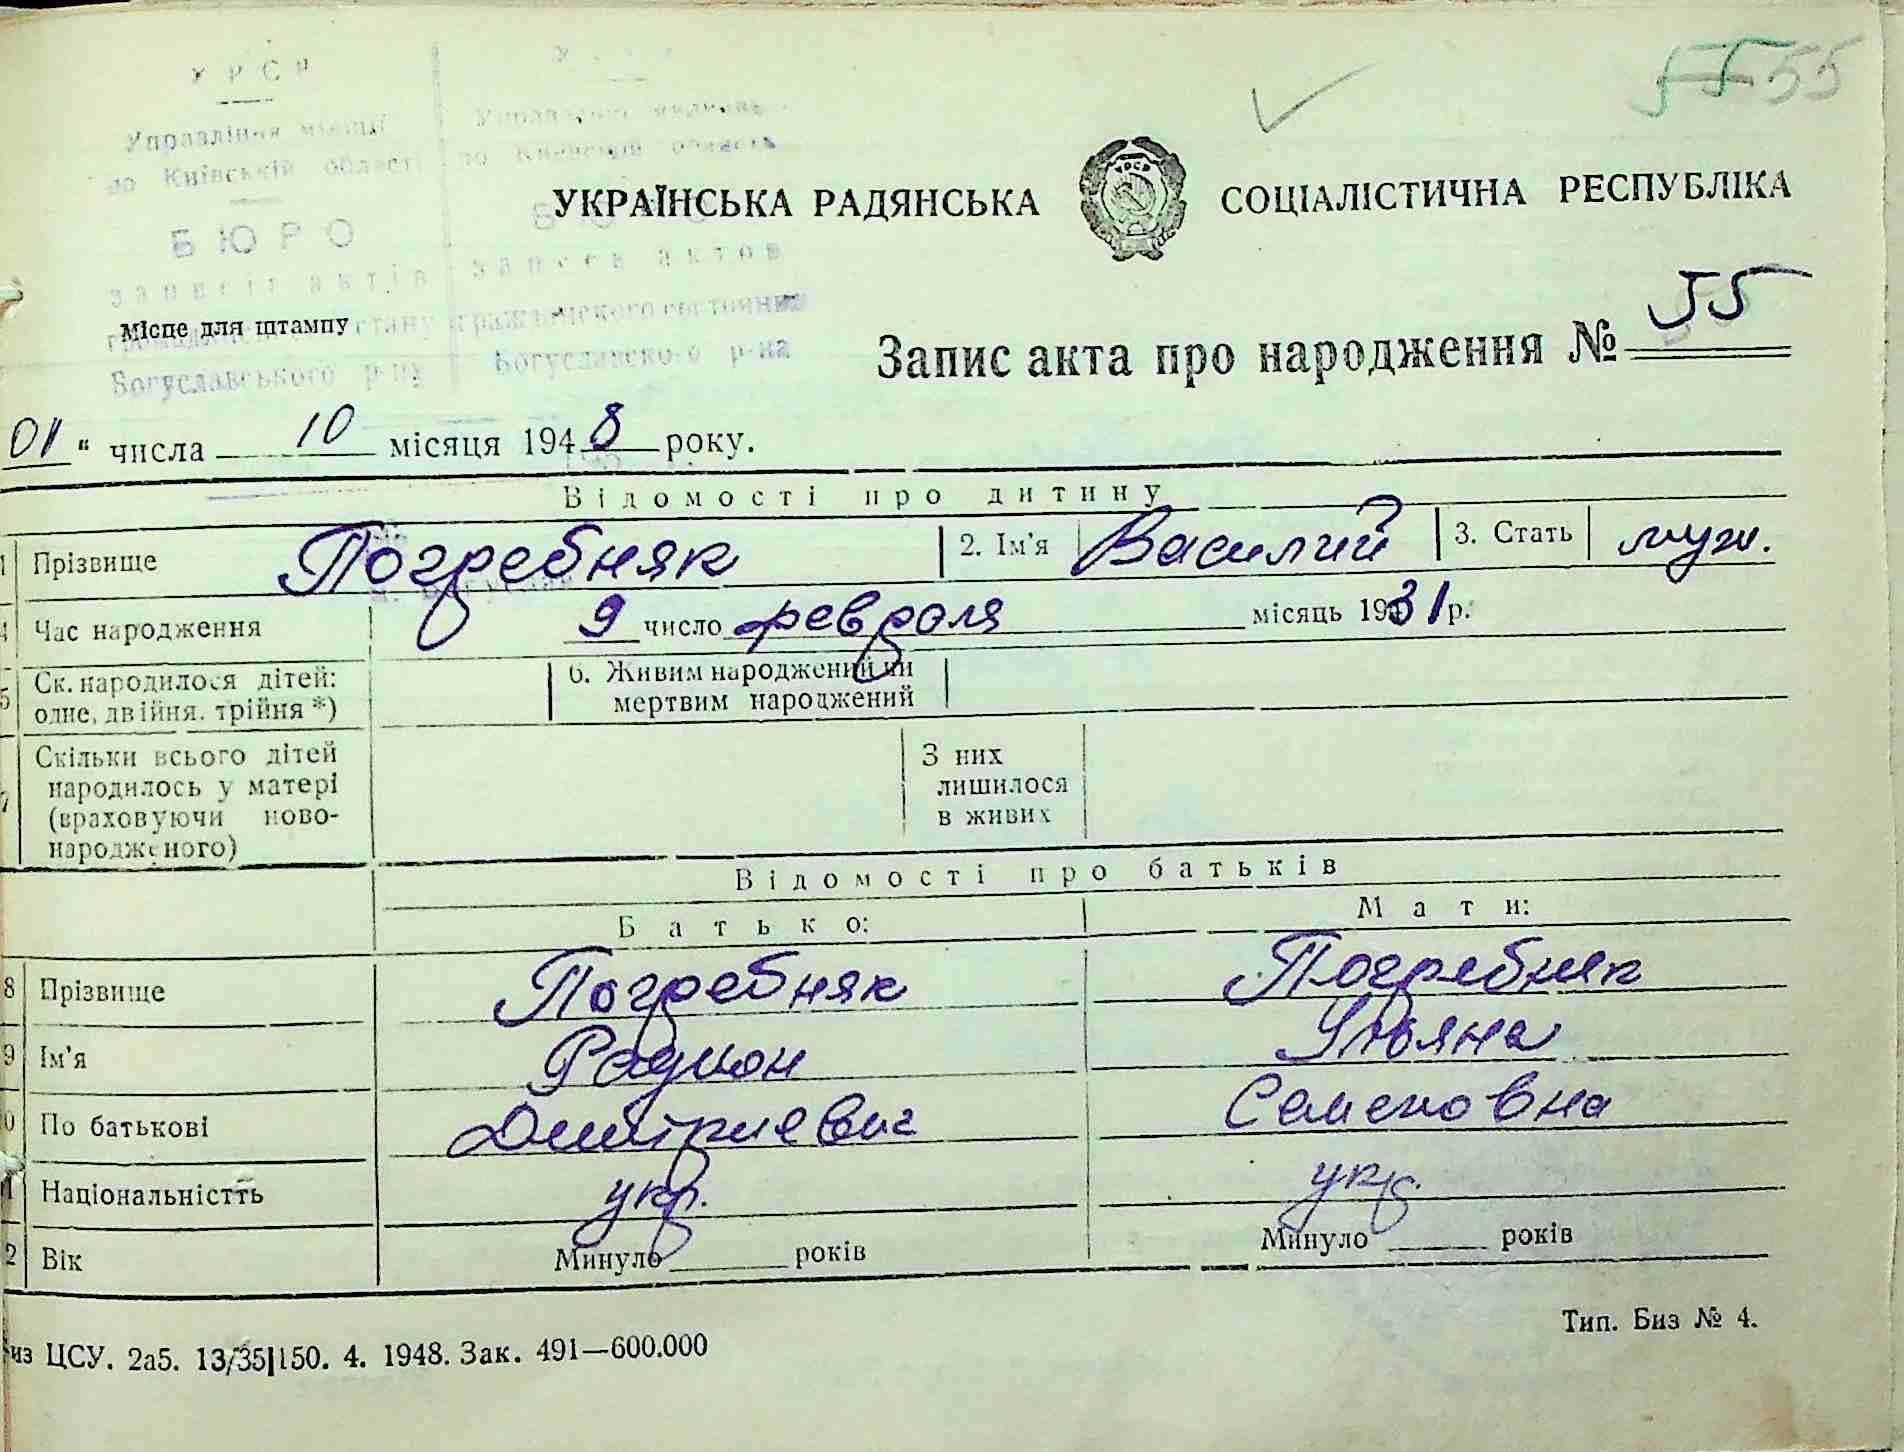 55 55
УРСР
Управління міліції
по Київській області
БЮРО
записів актів
громадянського стану
Богуславського р-ну
Управление милиции
по Киевской области
записей актов
гражданского состояния
Богуславского р-на
УКРАЇНСЬКА РАДЯНСЬКА СОЦІАЛІСТИЧНА РЕСПУБЛІКА
УРСР
Місце для штампу
Запис акта про народження № 55
01 " числа 10 місяця 1948 року.
Відомості про дитину
1 Прізвище Погребняк 2. Ім'я Василий 3. Стать муж.
4 Час народження 9 число февраля місяць 1931 р.
5 Ск. народилося дітей: 6. Живим народжений чи
одне, двійня, трійня *) мертвим народжений
7 Скільки всього дітей З них
народилось у матері лишилося
(враховуючи ново- в живих
народженого)
Відомості про батьків
Батько: Мати:
8 Прізвище Погребняк Погребняк
9 Ім'я Радион Ульяна
0 По батькові Дмитриевич Семеновна
1 Національністть укр. укр.
2 Вік Минуло ______ років Минуло ______ років
из ЦСУ. 2а5. 13/35|150. 4. 1948. Зак. 491—600.000
Тип. Биз № 4.